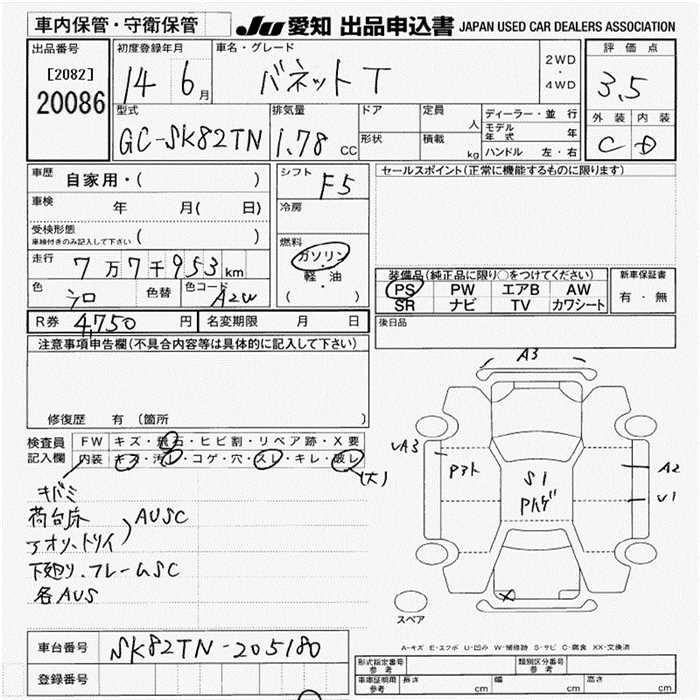 車内保管・守衛保管
JU 愛知 出品申込書 JAPAN USED CAR DEALERS ASSOCIATION
出品番号
[2082]
20086
初度登録年月
14 6月
車名・グレード
バネットT
2WD
・
4WD
評価点
3.5
型式
GC-SK82TN
排気量
1.78 CC
ドア
形状
定員
人
積載
kg
ディーラー・並行
モデル年式 年
ハンドル 左・右
外装 内装
C D
車歴
自家用・( )
車検
年 月( 日)
受検形態
車検付きのみ記入して下さい ( )
走行
7万7千953km
色
シロ
色替
色コード
A2W
シフト
F5
冷房
燃料
ガソリン
・
軽・油
( )
セールスポイント(正常に機能するものに限ります)
装備品(純正品に限り○をつけてください)
PS PW エアB AW
SR ナビ TV カワシート
新車保証書
有・無
R券 4,750 円 名変期限 月 日
後日品
注意事項申告欄(不具合内容等は具体的に記入して下さい)
修復歴 有 (箇所 )
検査員
記入欄
FW キズ・飛石・ヒビ割・リペア跡・X要
内装 キズ・汚レ・コゲ・穴・スレ・キレ・破レ
(大)
キバミ
荷台床
アオリ、トリイ
AUSC
下廻り、フレームSC
各AUS
A3
UA3
A2
U1
S1
スペア
A-キズ E-エクボ U-凹み W-補修跡 S-サビ C-腐食 XX-交換済
車台番号 SK82TN-205180
登録番号
形式指定番号
参考
類別区分番号
参考
車庫証明用
参考
長さ cm 幅 cm 高さ cm